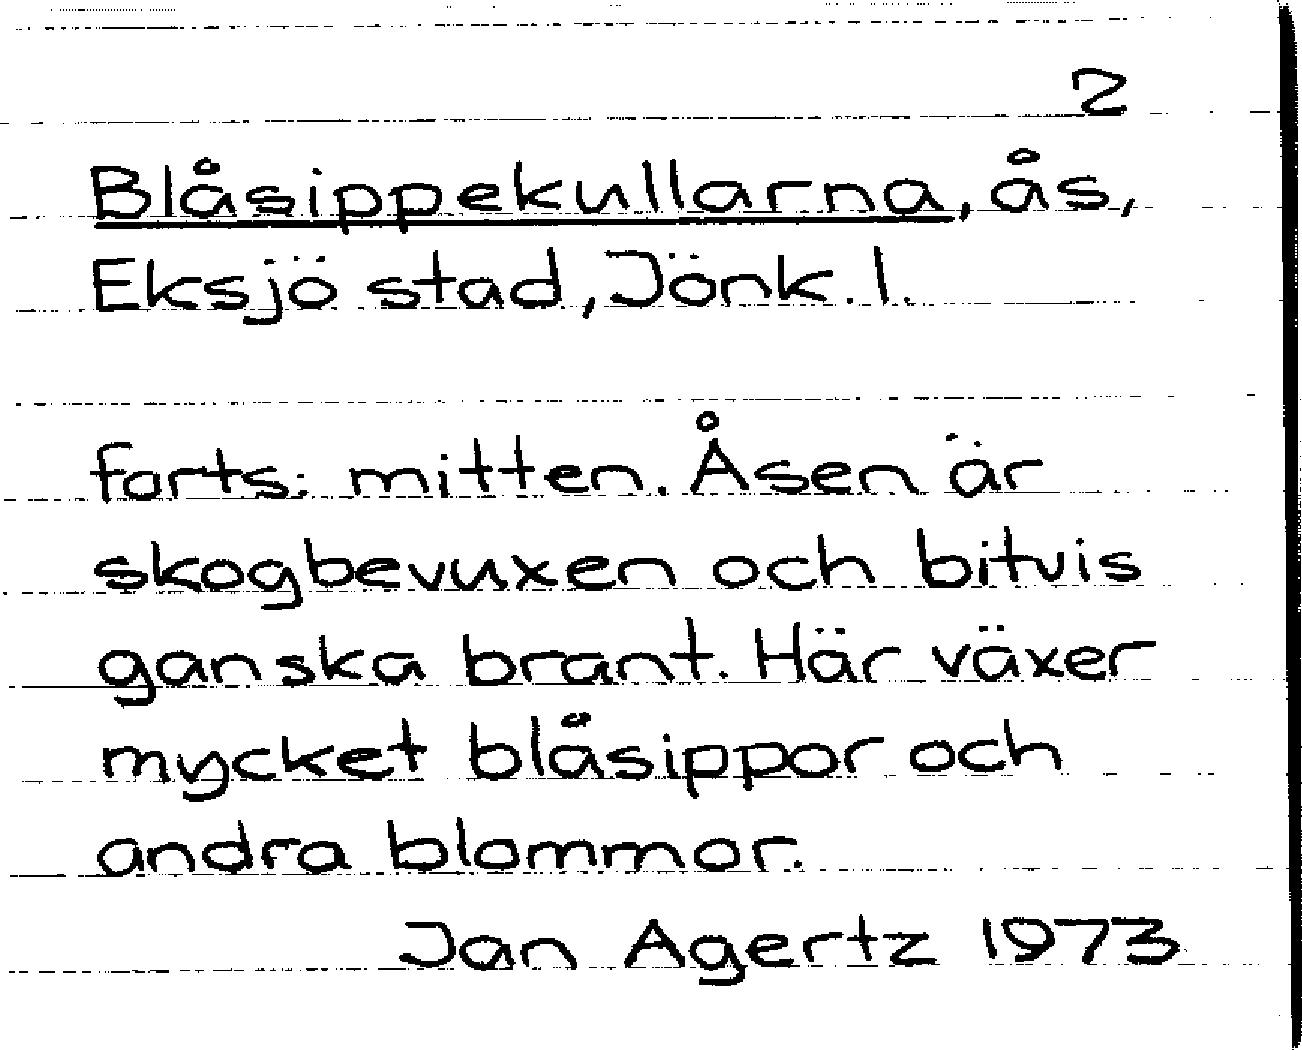 2
Blåsippekullarna, ås,
Eksjö stad, Jönk. l.
forts: mitten. Åsen är
skogbevuxen och bitvis
ganska brant. Här växer
mycket blåsippor och
andra blommor.
Jan Agertz 1973